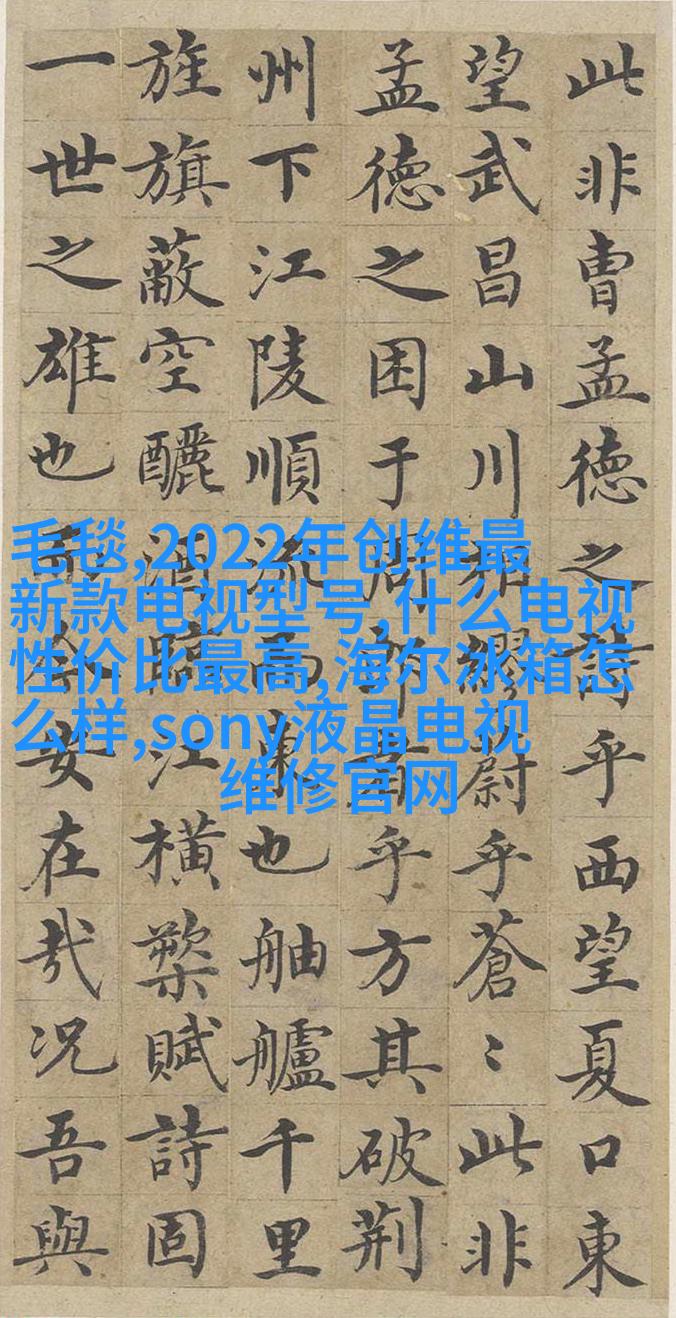 此非曹孟德之詩乎西望夏口東
望武昌山川相繆蔚乎蒼〻此非
孟德之困于周郎者乎方其破荆
州下江陵順流而東也舳艫千里
旌旗蔽空釃酒臨江橫槊賦詩固
一世之雄也而今安在哉况吾與
毛毯,2022年创维最
新款电视型号,什么电视
性价比最高,海尔冰箱怎
么样,sony液晶电视
维修官网